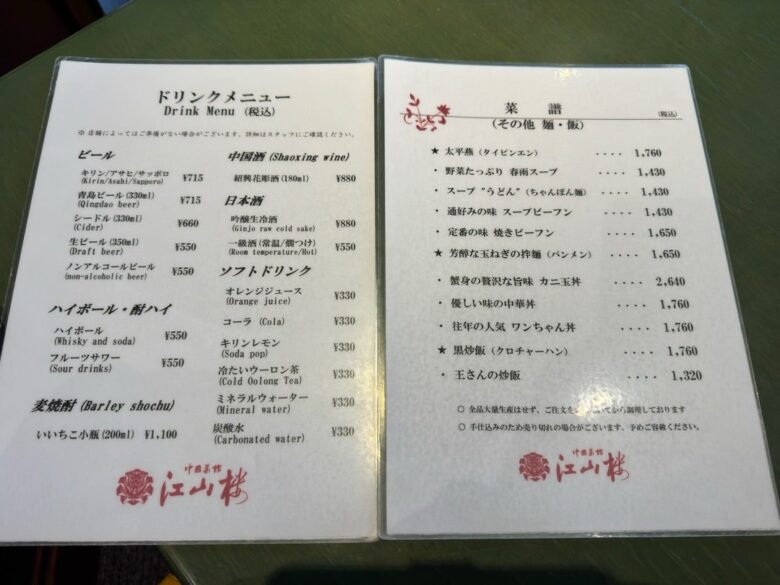 ドリンクメニュー
Drink Menu (税込)
※ 店舗によってはご準備がない場合がございます。詳細はスタッフにご確認ください。
ビール
キリン/アサヒ/サッポロ ¥715
(Kirin/Asahi/Sapporo)
青島ビール(330ml) ¥715
(Qingdao beer)
シードル(330ml) ¥660
(Cider)
生ビール(350ml) ¥550
(Draft beer)
ノンアルコールビール ¥550
(non-alcoholic beer)
ハイボール・酎ハイ
ハイボール ¥550
(Whisky and soda)
フルーツサワー ¥550
(Sour drinks)
麦焼酎 (Barley shochu)
いいちこ小瓶(200ml) ¥1,100
中国酒 (Shaoxing wine)
紹興花彫酒(180ml) ¥880
日本酒
吟醸生冷酒 ¥880
(Ginjo raw cold sake)
一級酒(常温/燗つけ) ¥550
(Room temperature/Hot)
ソフトドリンク
オレンジジュース ¥330
(Orange juice)
コーラ (Cola) ¥330
キリンレモン ¥330
(Soda pop)
冷たいウーロン茶 ¥330
(Cold Oolong Tea)
ミネラルウォーター ¥330
(Mineral water)
炭酸水 ¥330
(Carbonated water)
中国菜館
江山楼
菜 譜
(その他 麺・飯)
(税込)
★ 太平燕 (タイピンエン) ···· 1,760
・ 野菜たっぷり 春雨スープ ···· 1,430
・ スープ “うどん” (ちゃんぽん麺) ···· 1,430
・ 通好みの味 スープビーフン ···· 1,430
・ 定番の味 焼きビーフン ···· 1,650
★ 芳醇な玉ねぎの拌麺 (バンメン) ···· 1,650
・ 蟹身の贅沢な旨味 カニ玉丼 ···· 2,640
・ 優しい味の中華丼 ···· 1,760
・ 往年の人気 ワンちゃん丼 ···· 1,760
★ 黒炒飯 (クロチャーハン) ···· 1,760
・ 王さんの炒飯 ···· 1,320
○ 全品大量生産はせず、ご注文を から調理しております
○ 手仕込みのため売り切れの場合がございます、予めご容赦ください。
中国菜館
江山楼